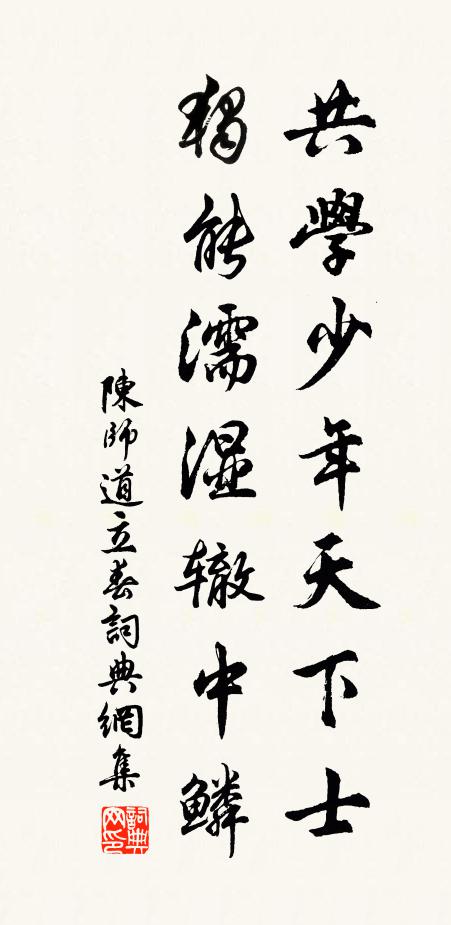 共學少年天下士
獨能濡湿辙中鱗
陳師道立春詞典網集
詞典网印